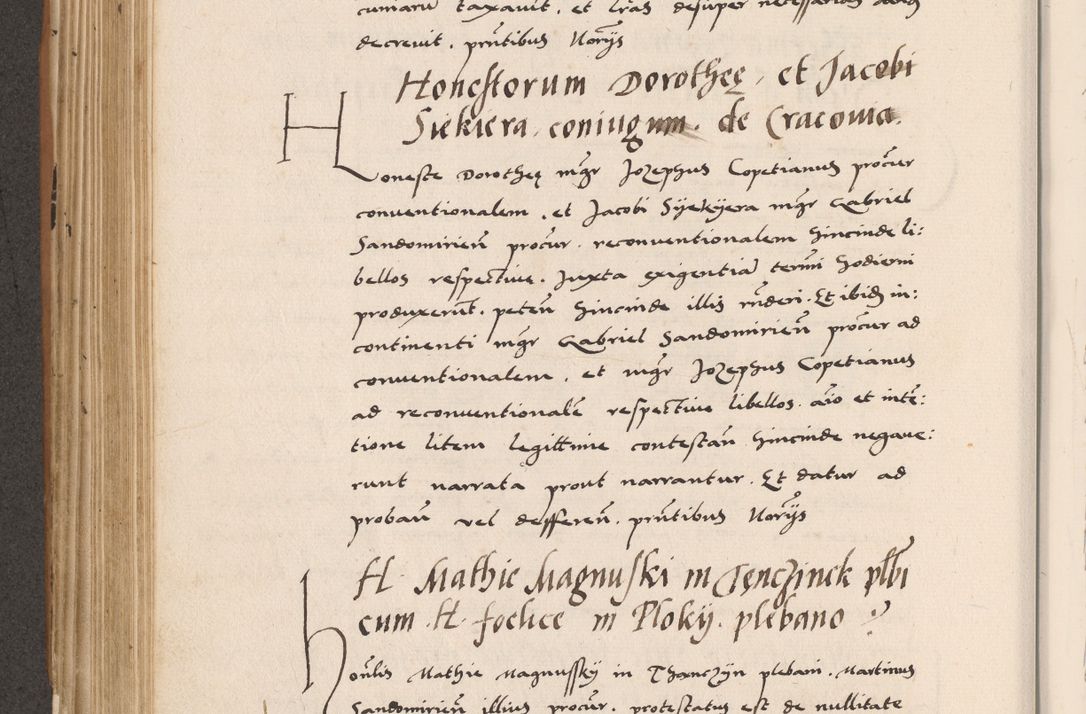 cuniaru taxavit, et lras desuper necessarias
decrevit. pntibus Norijs
Honestorum Dorotheę, et Jacobi
Siekiera, coniugum. de Cracovia.
Honeste Dorothee mgr Jozephus Copetianus procur
conventionalem, et Jacobi Syekyera mgr Gabriel
Sandomirien procur. reconventionalem hincinde li:
bellos respective. Juxta exigentia termi hodierni
produxerut. peten hincinde illis rnderi. Et ibidz in:
continenti mgr Gabriel Sandomirien procur ad
conventionalem, et mgr Jozephus Copetianus
ad reconventionale respective libellos. aio et inte:
tione litem legittime contestan hincinde negave:
runt narrata prout narrantur. Et datur ad
proban vel defferen. pntibus Norijs
H. Mathie Magnuski in Tenczinek plbi
cum H. foelice in Ploky. plebano
honlis Mathie Magnussky in Thanczyn plebani. Martinus
Sandomirien illius procur. protestatus est de nullitate